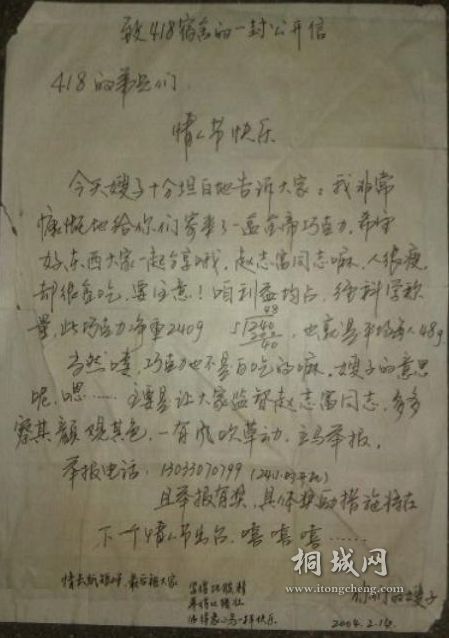 致418宿舍的一封公开信
418的弟兄们
情人节快乐
今天嫂子十分坦白地告诉大家:我非常
慷慨地给你们寄来了一盒金帝巧克力,希望
好东西大家一起分享哦,赵志富同志嘛,人很瘦
却很贪吃,要注意!咱利益均占,经科学称
量,此巧克力净重240g
48
5 240
240
40
也就是平均每人48g
当然喽,巧克力也不是白吃的嘛,嫂子的意思
呢,嗯……主要是让大家监督赵志富同志,多多
察其颜观其色,一有风吹草动,立马举报。
举报电话:13033070799(24小时开机)
且举报有奖,具体奖励措施将在
下个情人节出台,嘻嘻嘻……
情长纸短 最后祝大家
桐城网
www.itongcheng.com
你们的嫂子
2004.2.14